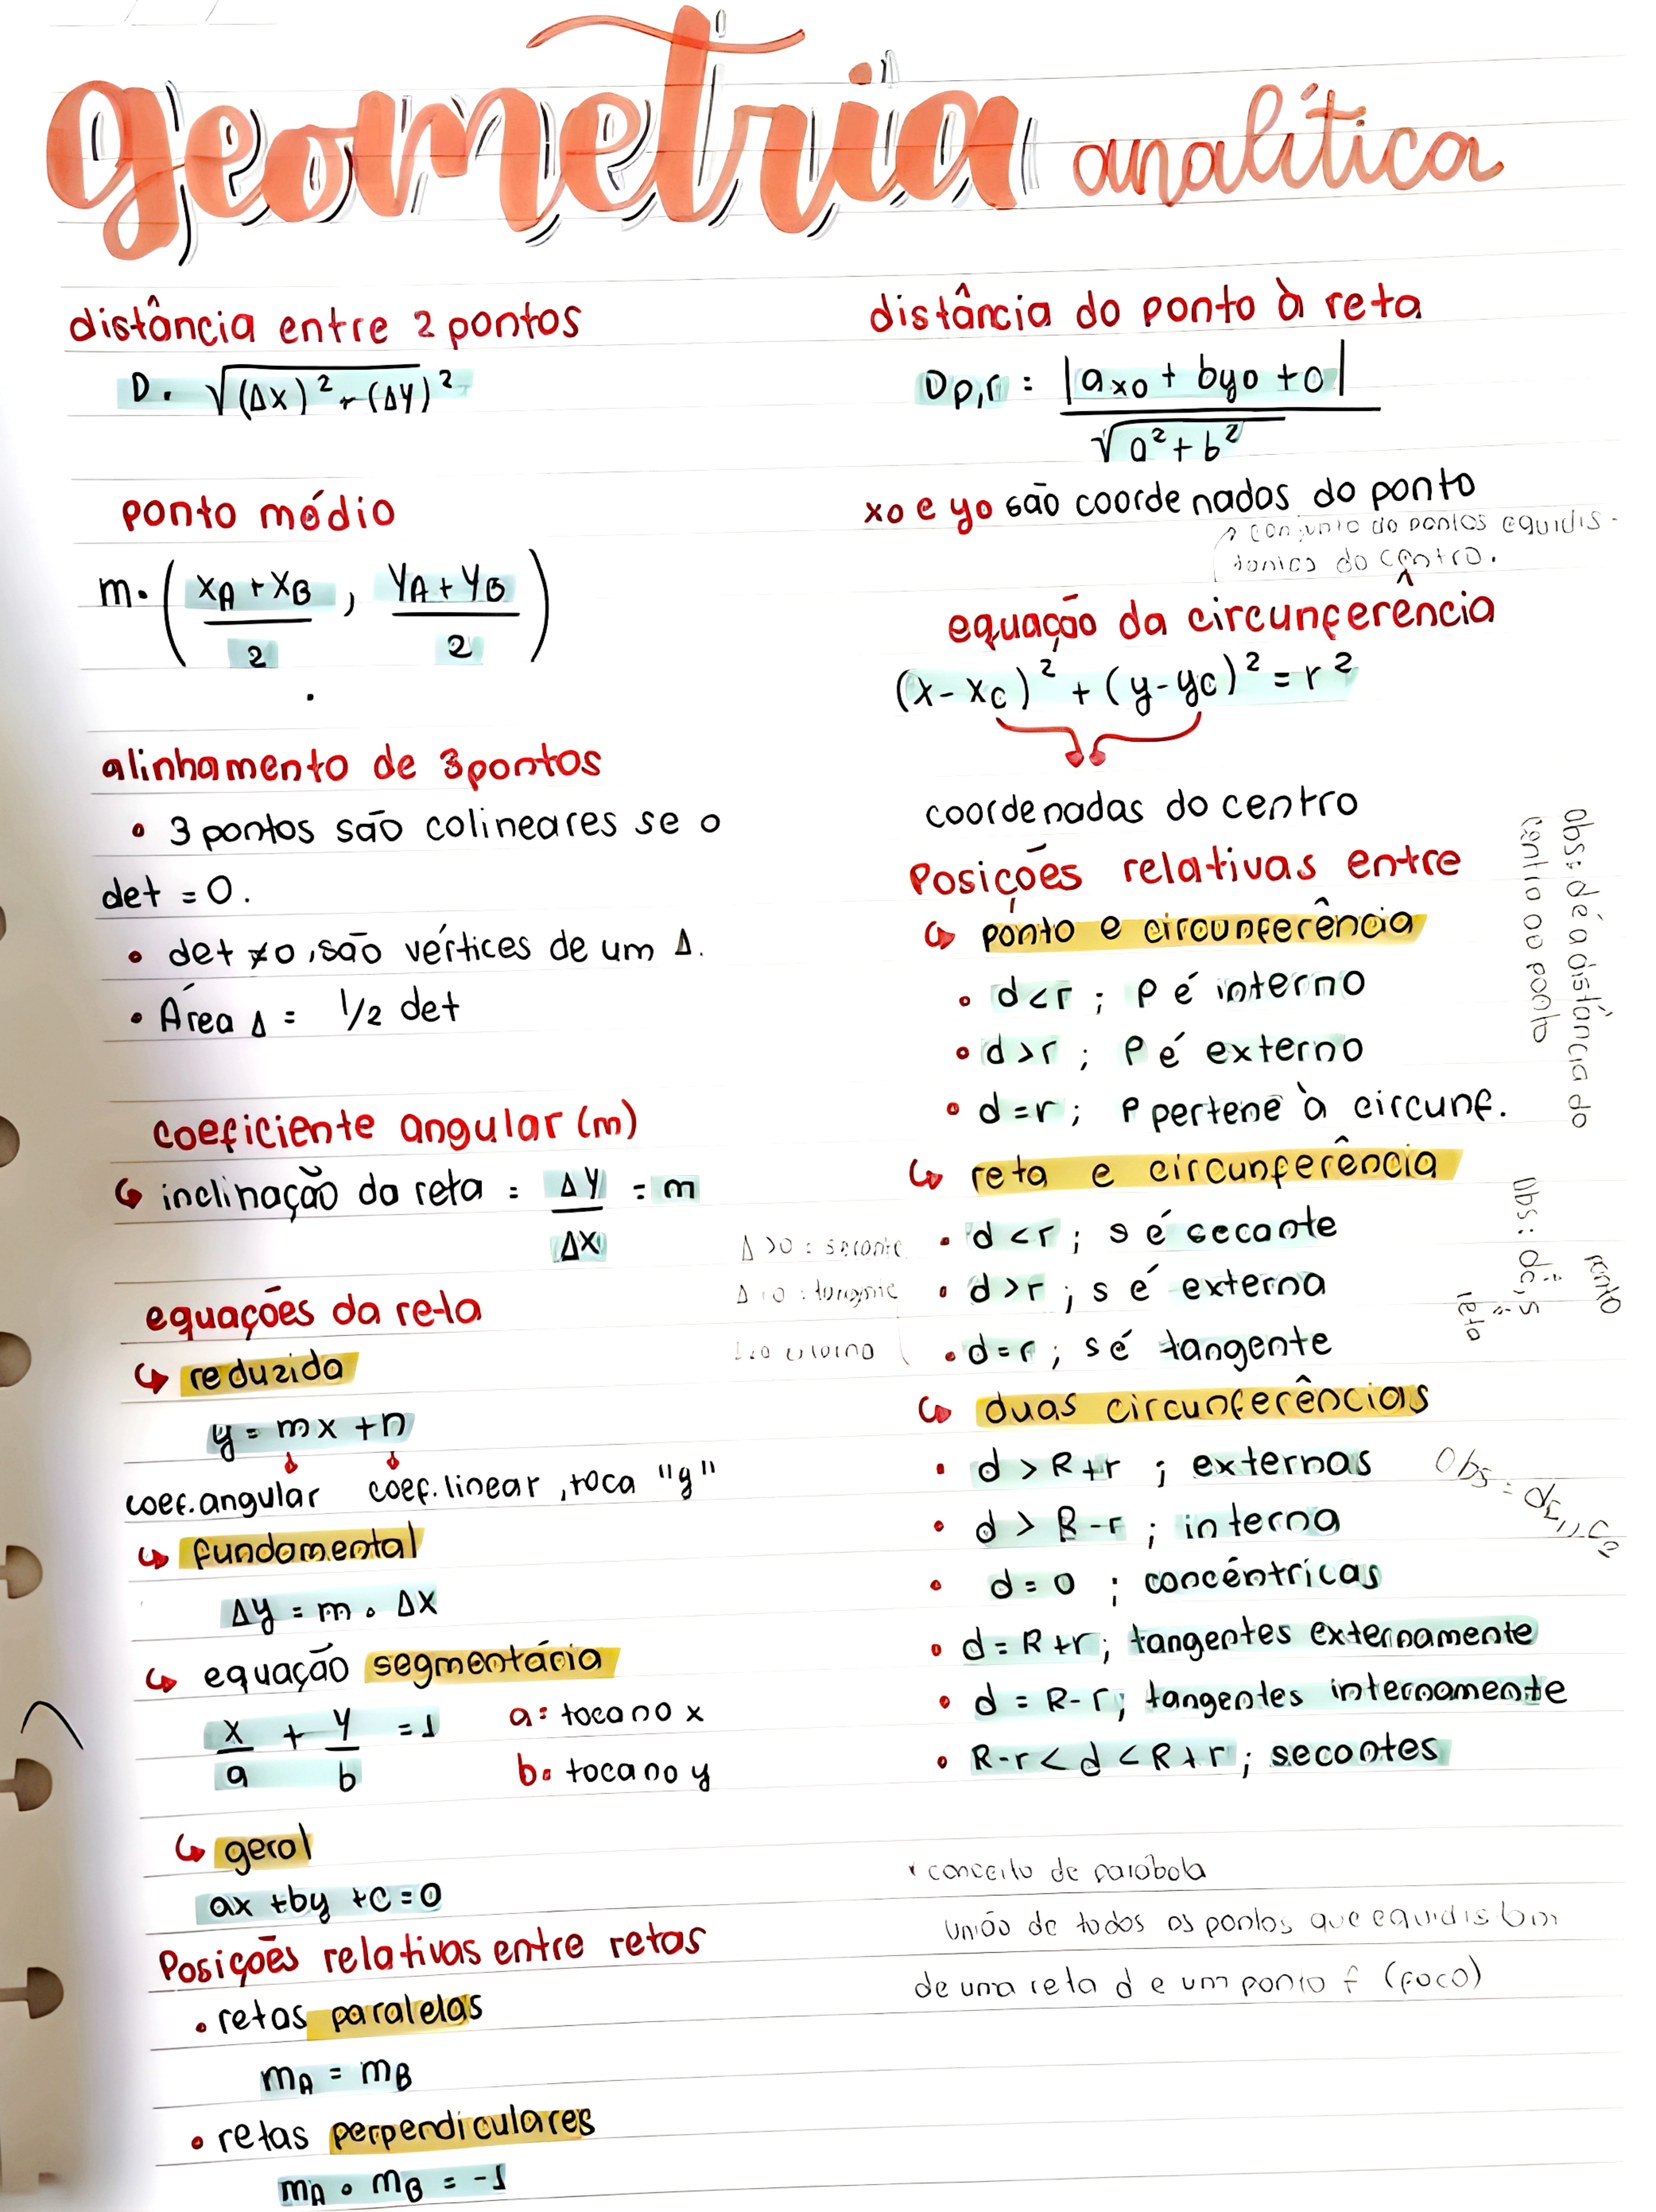 geometria analítica
distância entre 2 pontos
D = √(Δx)² + (Δy)²
ponto médio
m = ( xA + xB / 2 , yA + yB / 2 )
alinhamento de 3 pontos
• 3 pontos são colineares se o
det = 0.
• det ≠ 0, são vértices de um Δ.
• Área Δ = 1/2 det
coeficiente angular (m)
↳ inclinação da reta = Δy / Δx = m
equações da reta
↳ reduzida
y = mx + n
coef. angular coef. linear, toca "y"
↳ fundamental
Δy = m . Δx
↳ equação segmentária
x/a + y/b = 1
a: toca no x
b: toca no y
↳ geral
ax + by + c = 0
Posições relativas entre retas
• retas paralelas
mA = mB
• retas perpendiculares
mA . mB = -1
distância do ponto à reta
Dp,r = |ax0 + by0 + 0| / √a² + b²
xo e yo são coordenados do ponto
conjunto do pontos equidis-
do centro.
equação da circunferência
(x - xc)² + (y - yc)² = r²
coordenadas do centro
Posições relativas entre
↳ ponto e circunferência
• d < r ; P é interno
• d > r ; P é externo
• d = r ; P pertene à circunf.
obs: d é a distância do
centro ao ponto
↳ reta e circunferência
• d < r ; s é secante
• d > r ; s é externa
• d = r ; s é tangente
Δ > 0 : secante
Δ = 0 : tangente
Obs: dc,s
ponto
reta
↳ duas circunferências
• d > R + r ; externas
• d > R - r ; interna
• d = 0 ; concêntricas
• d = R + r ; tangentes externamente
• d = R - r ; tangentes internamente
• R - r < d < R + r ; secantes
Obs: dc1, c2
• conceito de parábola
União de todos os pontos que equidistam
de uma reta d e um ponto f (foco)